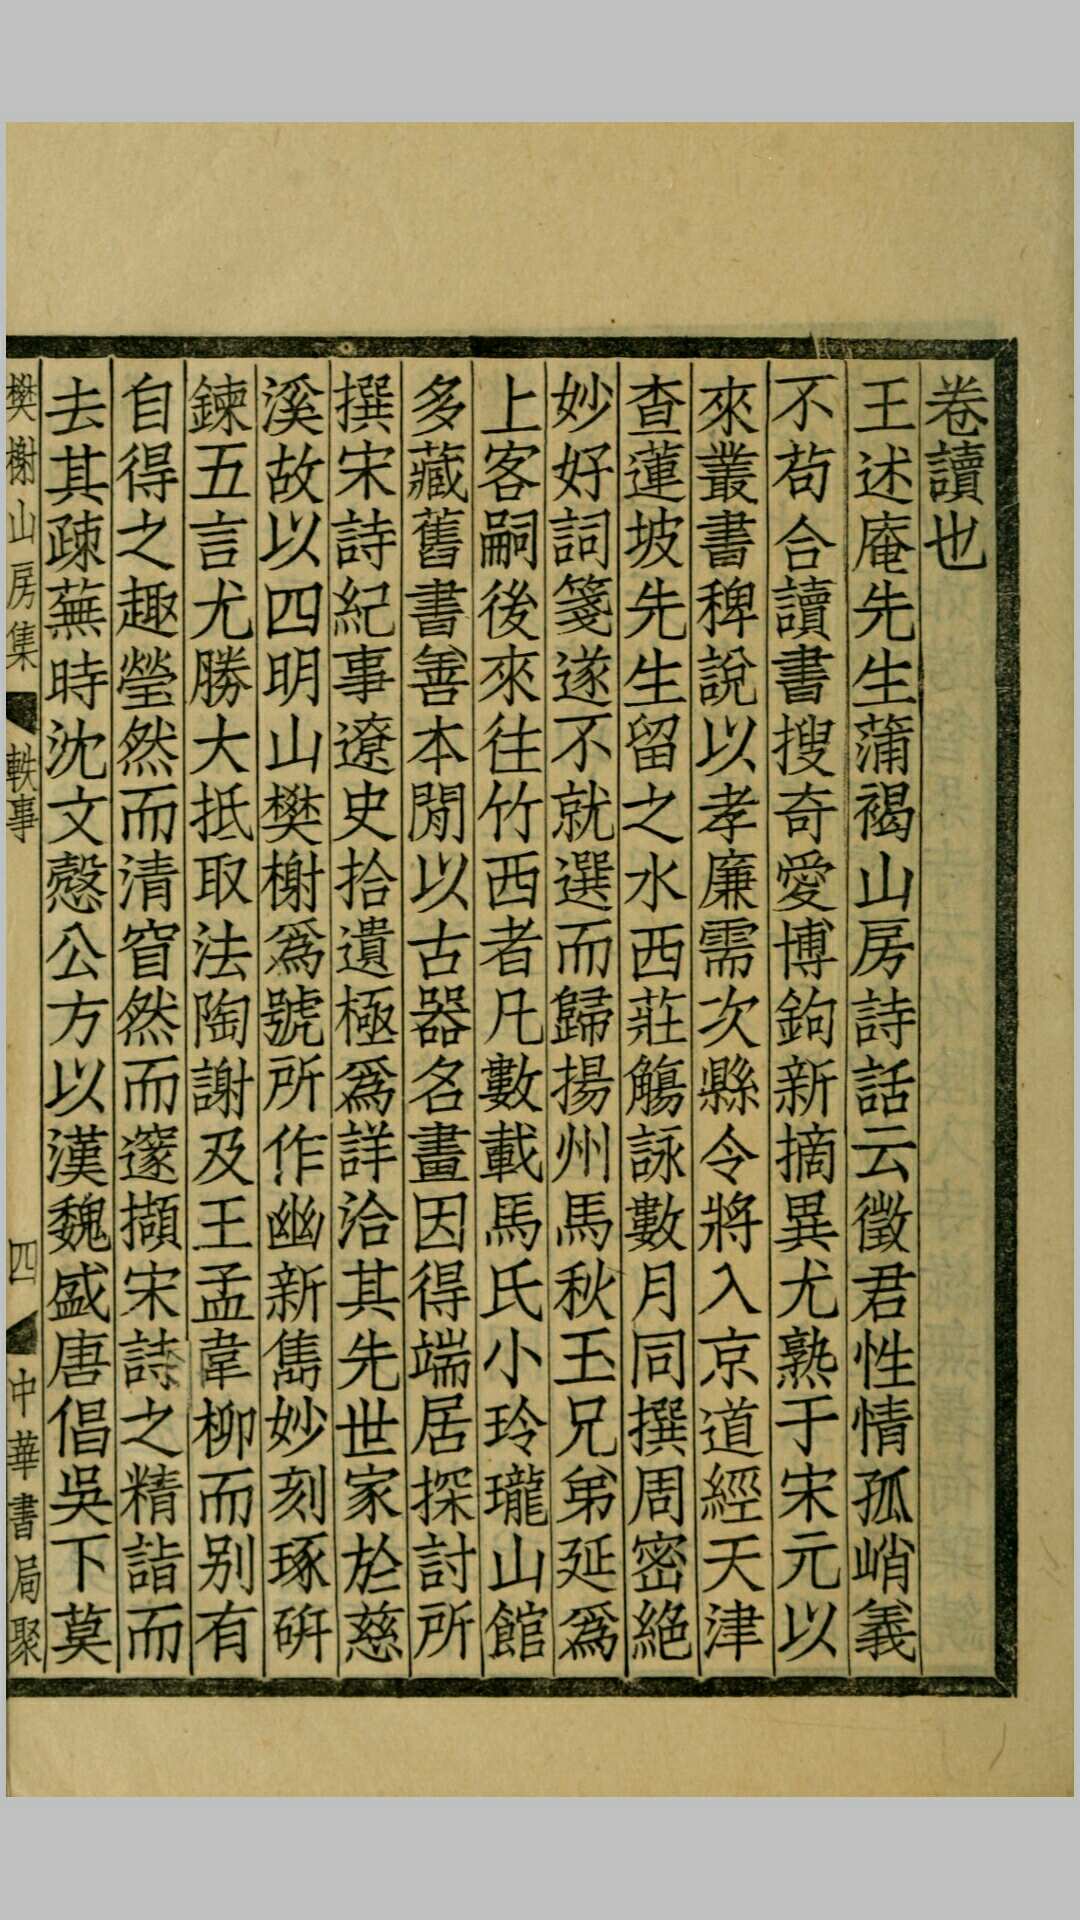 卷讀也
王述庵先生蒲褐山房詩話云徵君性情孤峭義
不苟合讀書搜奇愛博鉤新摘異尤熟于宋元以
來叢書稗說以孝廉需次縣令將入京道經天津
查蓮坡先生留之水西莊觴詠數月同撰周密絶
妙好詞箋遂不就選而歸揚州馬秋玉兄弟延爲
上客嗣後來往竹西者凡數載馬氏小玲瓏山館
多藏舊書善本閒以古器名畫因得端居探討所
撰宋詩紀事遼史拾遺極爲詳洽其先世家於慈
溪故以四明山樊榭爲號所作幽新雋妙刻琢硏
鍊五言尤勝大抵取法陶謝及王孟韋柳而别有
自得之趣瑩然而清窅然而邃擷宋詩之精詣而
去其疎蕪時沈文慤公方以漢魏盛唐倡吳下莫
樊榭山房集 軼事 四 中華書局聚